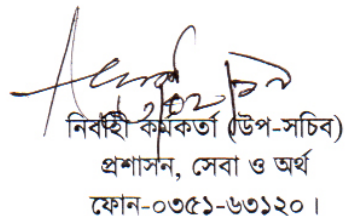 নির্বাহী কর্মকর্তা (উপ-সচিব)
প্রশাসন, সেবা ও অর্থ
ফোন-০৩৫১-৬৩১২০।